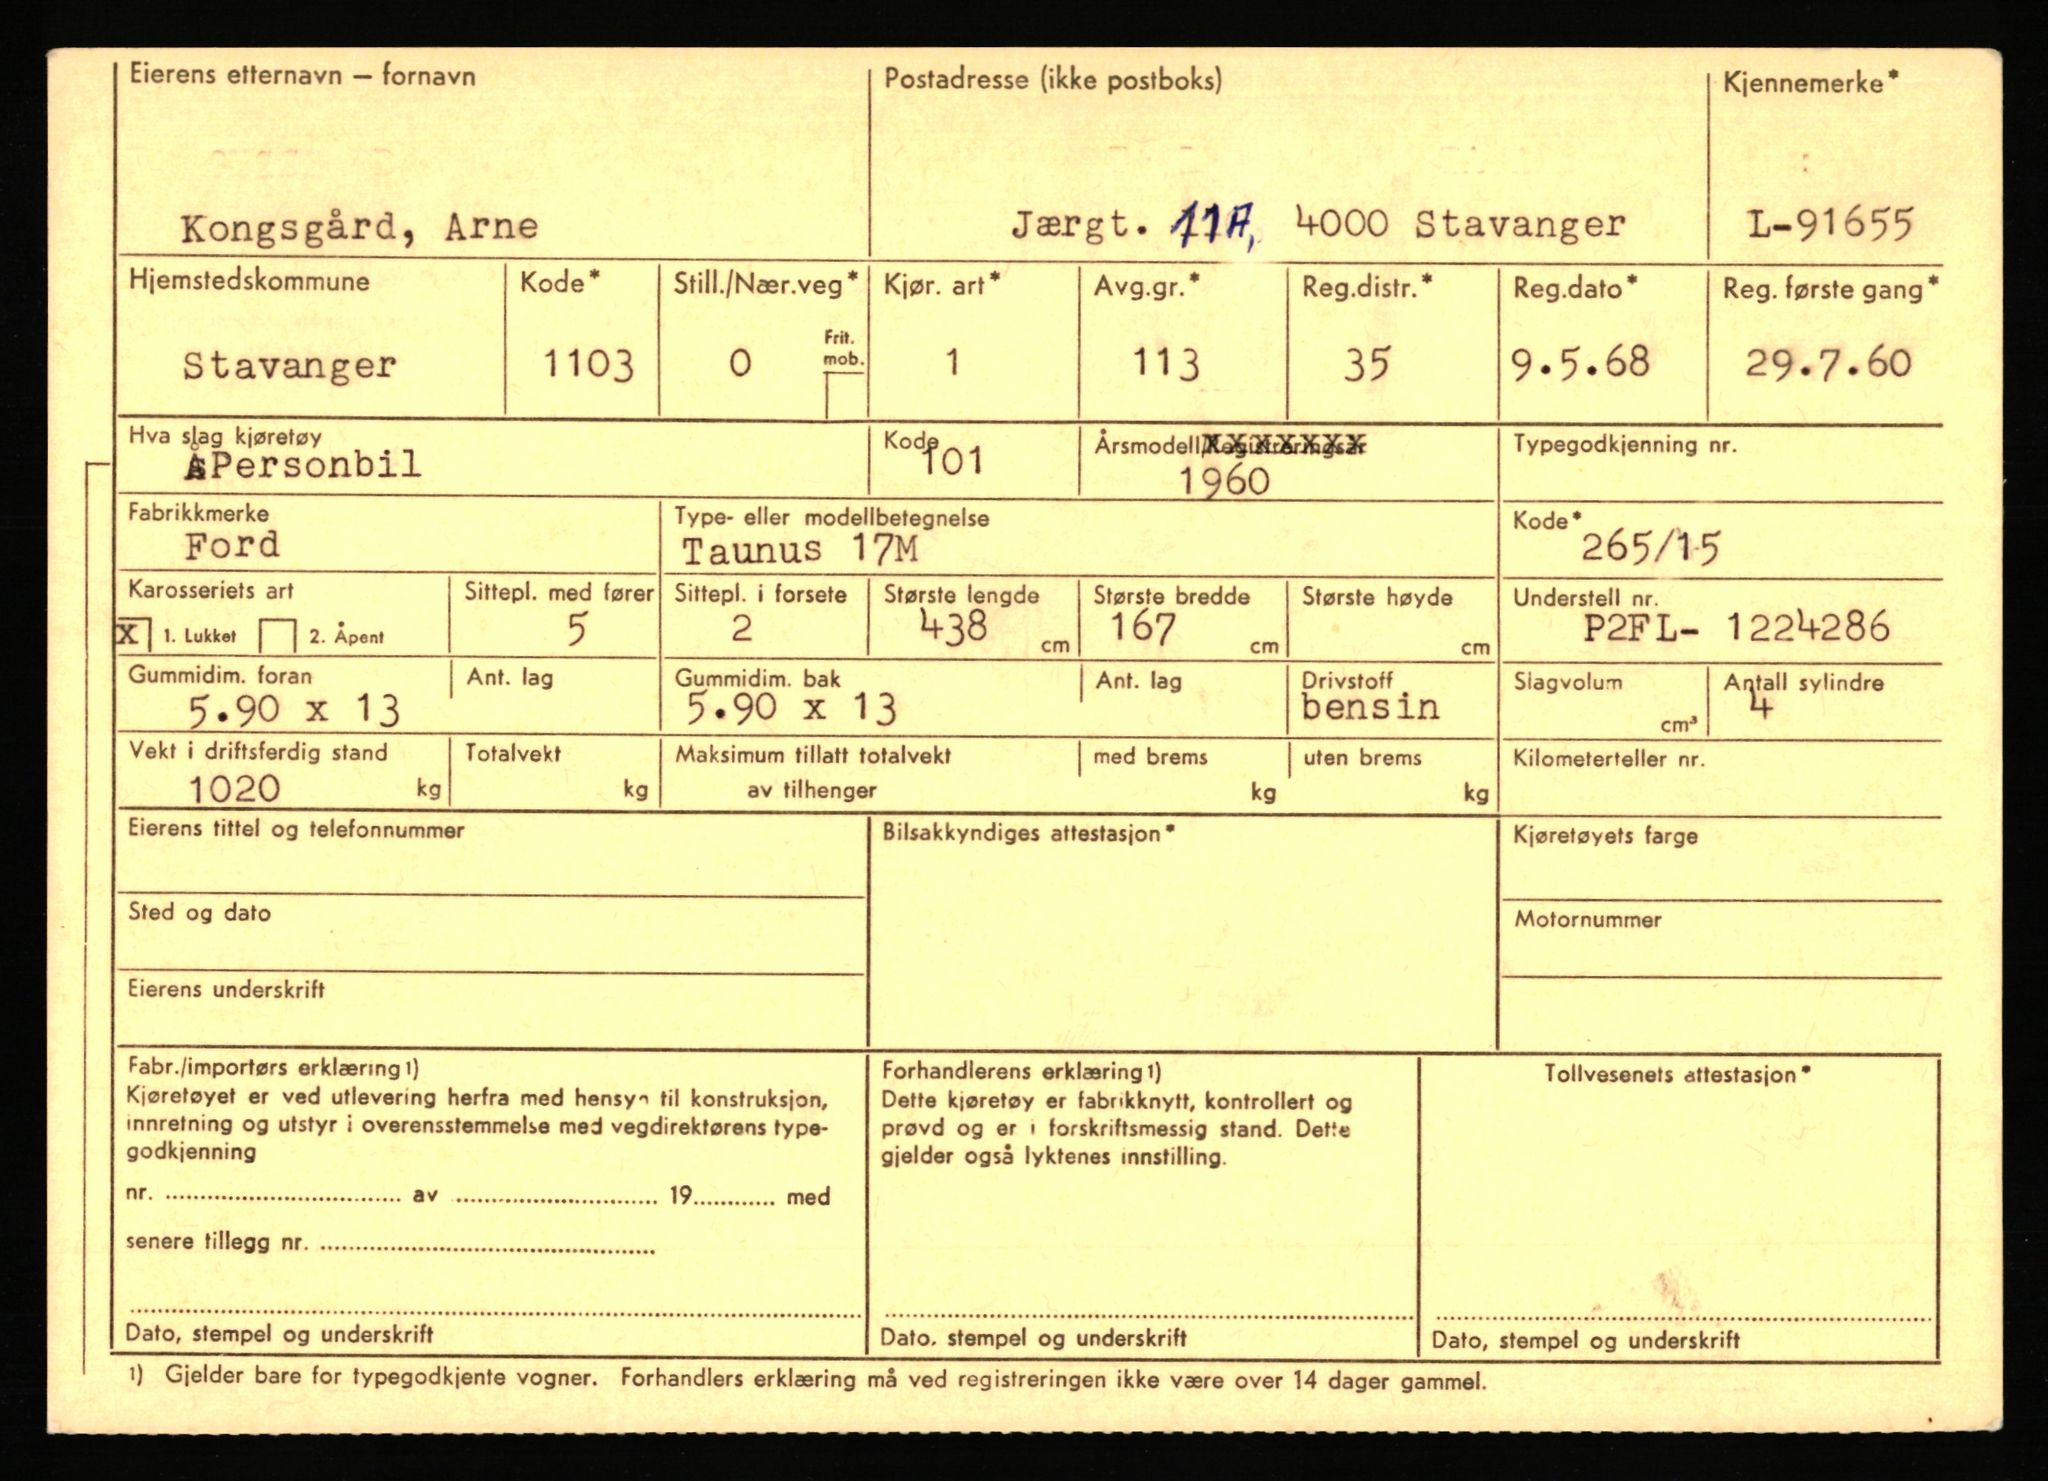 Eierens etternavn – fornavn
Postadresse (ikke postboks)
Kjennemerke*
Kongsgård, Arne
Jærgt. 11A, 4000 Stavanger
L-91655
Hjemstedskommune
Kode*
Still./Nær.veg*
Kjør. art*
Avg.gr.*
Reg.distr.*
Reg.dato*
Reg. første gang*
Frit.
mob.
Stavanger
1103
0
1
113
35
9.5.68
29.7.60
Hva slag kjøretøy
Kode
Årsmodell/Registreringsår
Typegodkjenning nr.
Personbil
101
1960
Fabrikkmerke
Type- eller modellbetegnelse
Kode*
Ford
Taunus 17M
265/15
Karosseriets art
Sittepl. med fører
Sittepl. i forsete
Største lengde
Største bredde
Største høyde
Understell nr.
X 1. Lukket
2. Åpent
5
2
438 cm
167 cm
cm
P2FL- 1224286
Gummidim. foran
Ant. lag
Gummidim. bak
Ant. lag
Drivstoff
Slagvolum
Antall sylindre
5.90 x 13
5.90 x 13
bensin
cm³
4
Vekt i driftsferdig stand
Totalvekt
Maksimum tillatt totalvekt
med brems
uten brems
Kilometerteller nr.
1020 kg
kg
av tilhenger
kg
kg
Eierens tittel og telefonnummer
Bilsakkyndiges attestasjon*
Kjøretøyets farge
Sted og dato
Motornummer
Eierens underskrift
Fabr./importørs erklæring 1)
Kjøretøyet er ved utlevering herfra med hensyn til konstruksjon,
innretning og utstyr i overensstemmelse med vegdirektørens type-
godkjenning
nr. .................................. av .............................. 19............ med
senere tillegg nr. ................................................
Dato, stempel og underskrift
Forhandlerens erklæring 1)
Dette kjøretøy er fabrikknytt, kontrollert og
prøvd og er i forskriftsmessig stand. Dette
gjelder også lyktenes innstilling.
Dato, stempel og underskrift
Tollvesenets attestasjon*
Dato, stempel og underskrift
1) Gjelder bare for typegodkjente vogner. Forhandlers erklæring må ved registreringen ikke være over 14 dager gammel.